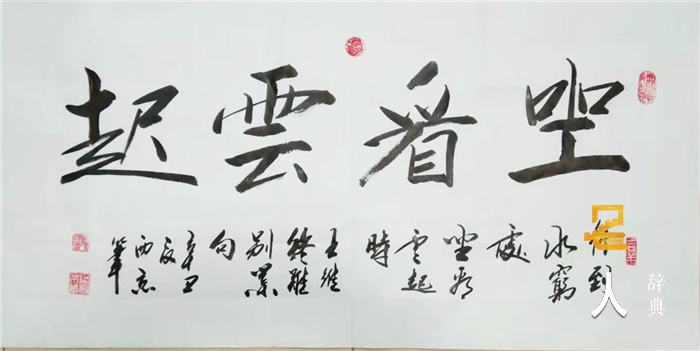 坐看雲起
行到
水窮
處
坐看
云起
時
王維
終
別業
句
辛丑
西京
筆
人
辞典